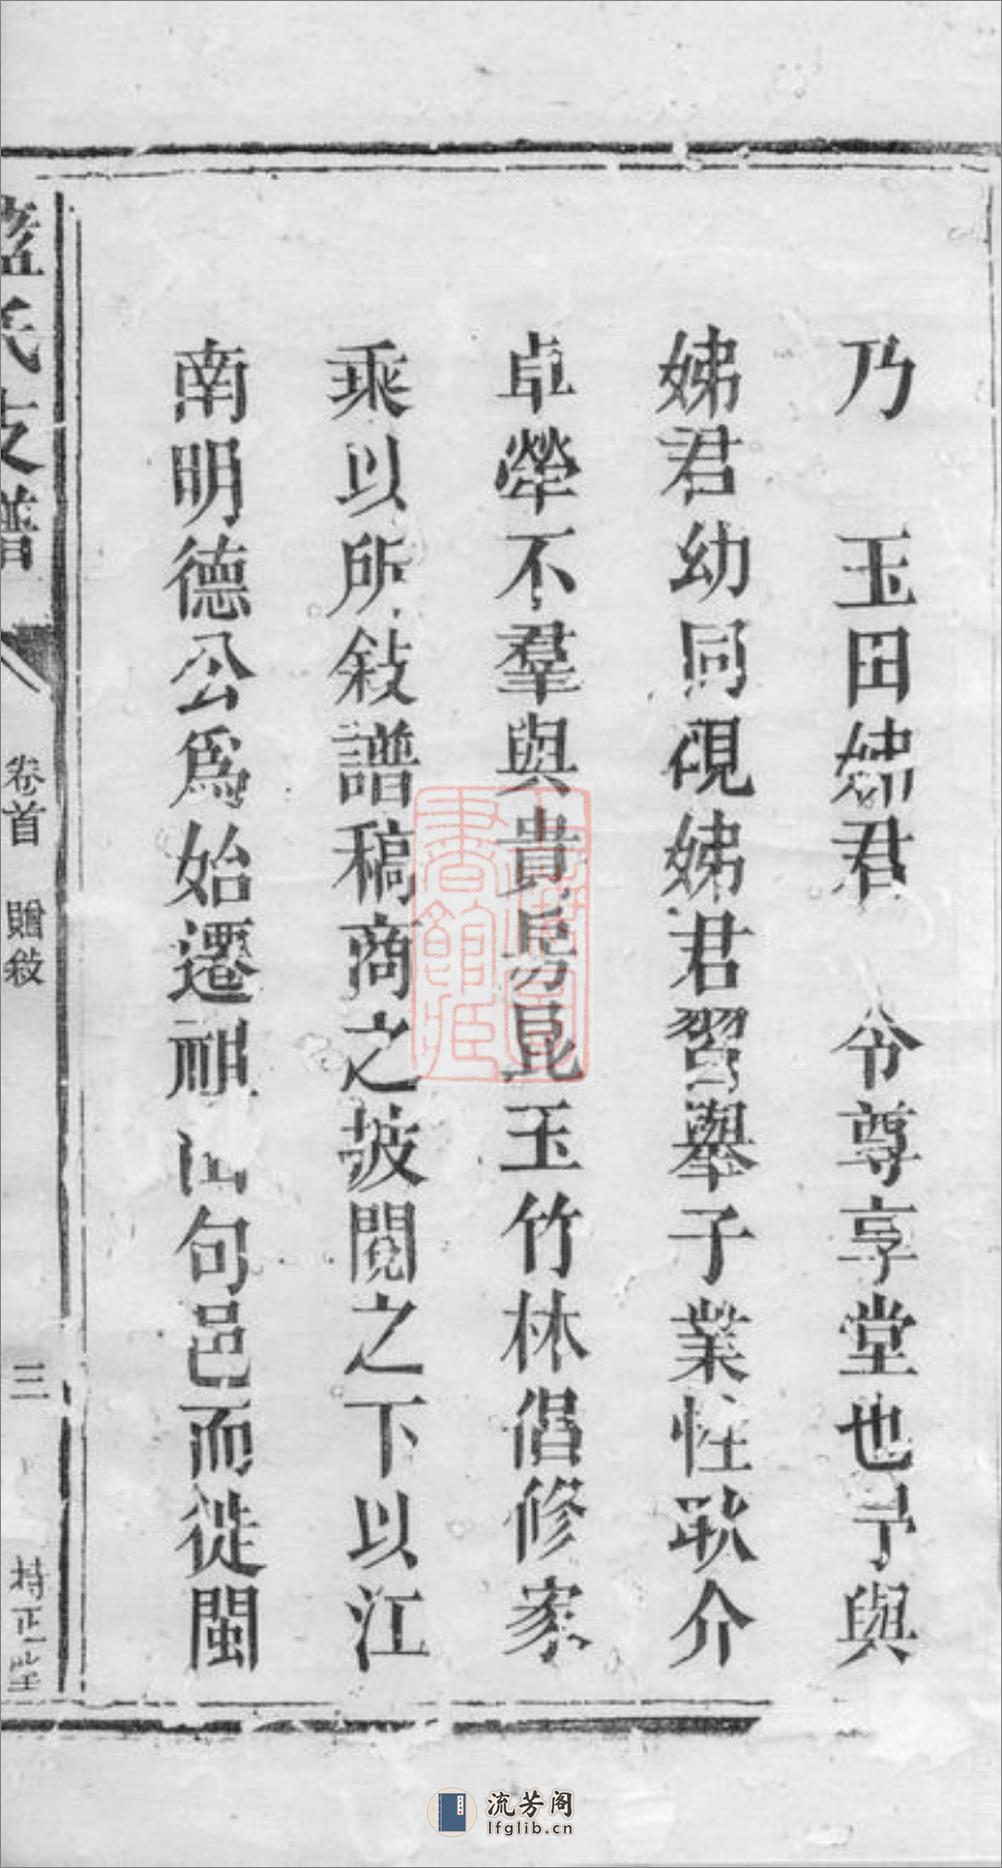 乃　玉田娣君　令尊享堂也予與
娣君幼同硯娣君習舉子業性耿介
卓犖不羣與貴房昆玉竹林倡修家
乘以所敍譜稿商之披閱之下以江
南明德公爲始遷祖由句邑而徙閩
藍氏支譜
卷首　贈敍
三
持正堂
書館藏
流芳阁
lfglib.cn